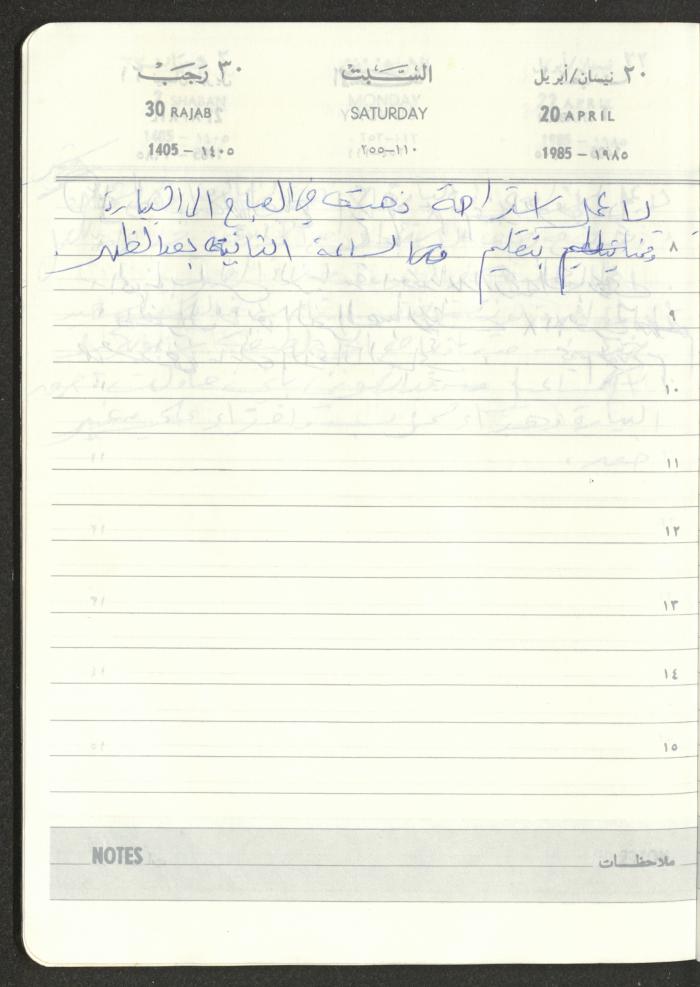 ٢٠ نيسان/أبريل السَّبت ٣٠ رَجَبْ
20 APRIL SATURDAY 30 RAJAB
1985 – ١٩٨٥ ١١٠–٢٥٥ 1405 – ١٤٠٥
لا عمل استراحة ذهبت في الصباح الى السيارة
وقمنا بتقليم الساعة الثانية بعد الظهر.
٨
٩
١٠
١١
١٢
١٣
١٤
١٥
NOTES ملاحظات